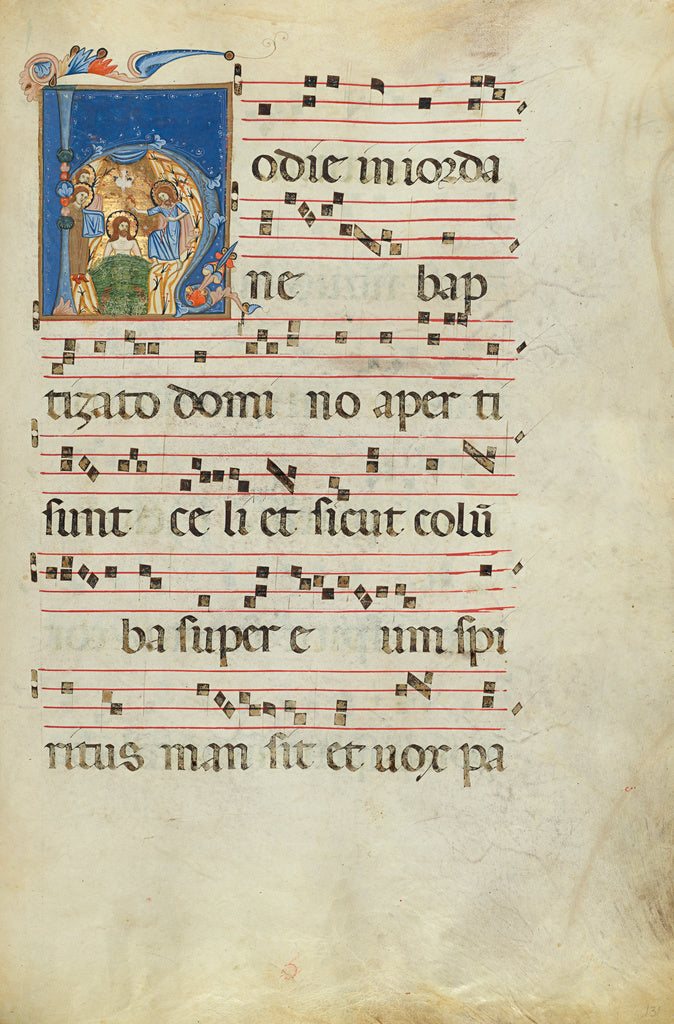 Hodie in iorda
ne bap
tizato domi no aper ti
sunt ce li et sicut colū
ba super e um spi
ritus man sit et uox pa
131